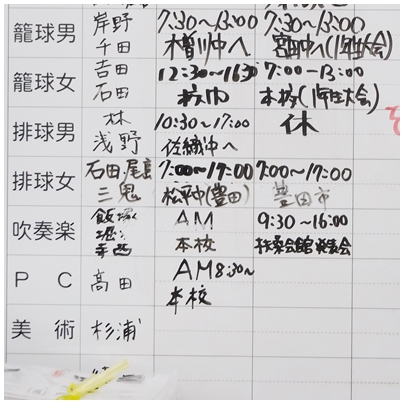 籠球男 岸野 7:30～13:00 7:30～13:00
千田 木曽川中へ 宮田中へ(1年生大会)
籠球女 吉田 12:30～16:30 7:00～13:00
石田 校内 本校(1年生大会)
排球男 林 10:30～17:00 休
浅野 佐織中へ
排球女 石田・尾﨑 7:00～17:00 7:00～17:00
三鬼 松平中(豊田) 豊田市
吹奏楽 飯塚 AM 9:30～16:00
堀 本校 扶桑会館 発表会
寺西
PC 高田 AM 8:30～
本校
美術 杉浦